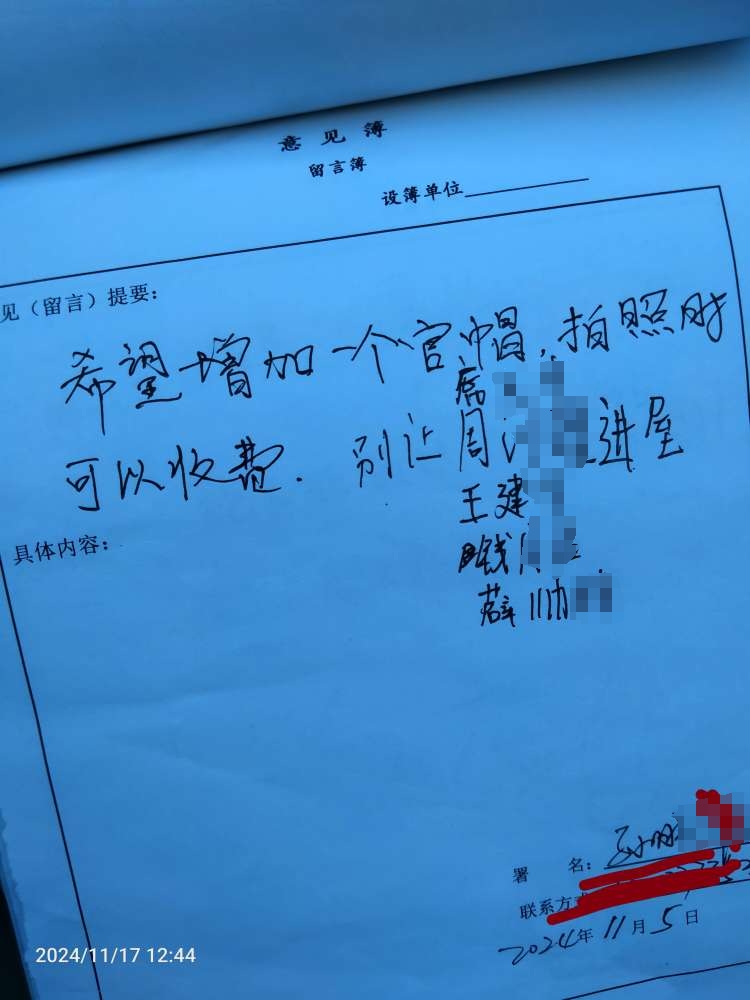 意见簿
留言簿
设簿单位
见（留言）提要：
希望增加一个官帽，拍照时
席
可以收费．别让周 进屋
王建
钱
薛
具体内容：
署 名：
联系方
2024年11月5日
2024/11/17 12:44